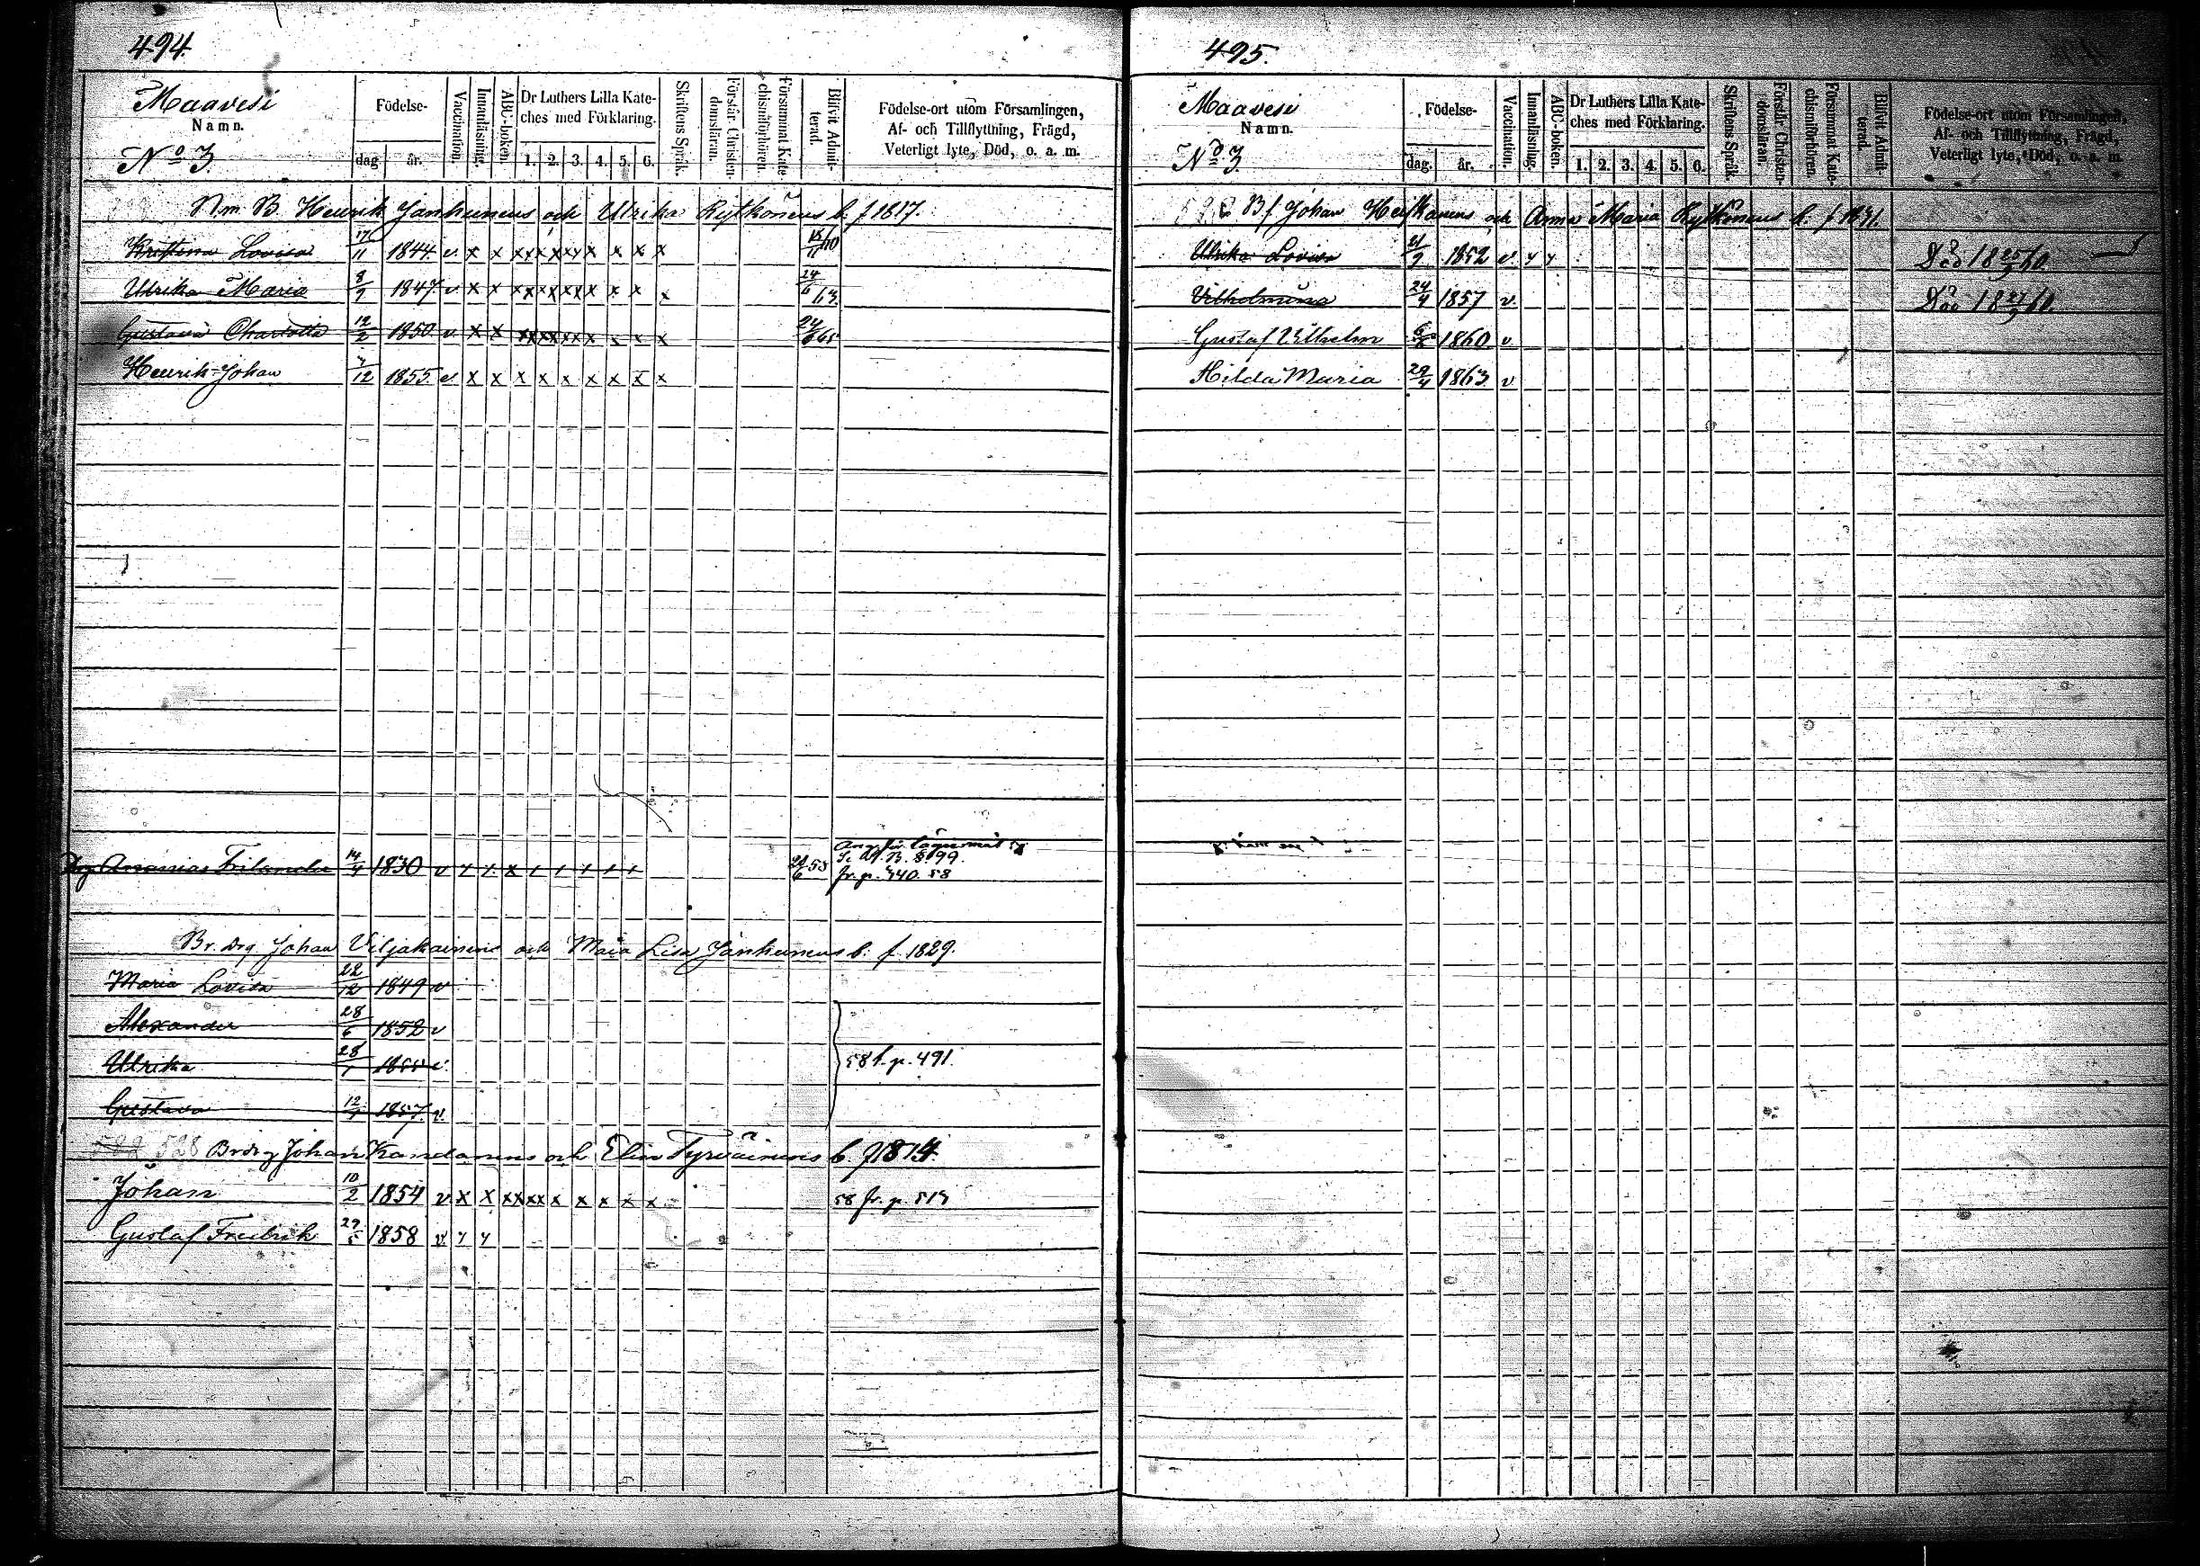 494.
Maavesi
Namn.
No 3.
Födelse-
dag
år.
Vaccination.
Innanläsning.
ABC-boken.
Dr Luthers Lilla Kate-
ches med Förklaring.
1. 2. 3. 4. 5. 6.
Skriftens Språk.
Förstår Christen-
domsläran.
Försummat Kate-
chismiförhören.
Blifvit Admit-
terad.
Födelse-ort utom Församlingen,
Af- och Tillflyttning, Frägd,
Veterligt lyte, Död, o. a. m.
Henrik Janhunens och Ulrika Rytkönens b. f 1817.
Kristina Lovisa 17/11 1844 v x x x x x x x x x x
Ulrika Maria 8/9 1847 v x x x x x x x x x x 24/6 63
Gustava Charlotta 12/2 1850 v x x x x x x x x x x
Henrik Johan 7/12 1855 v x x x x x x x x x
Ananias 14/4 1830 v
fr. p. 340. 58
Br. drg Johan Viljakainens och Maria Lisa Janhunens b. f. 1829.
Maria Lovisa 22/12 1849 v
Alexander 28/6 1852 v
Ulrika 28/1 1855 v
58 t. p. 491.
Gustava 12/ 1857 v.
528 Br drg Johan och Elin Tyrväinens b f 1814
Johan 10/2 1854 v x x x x x x x x x x 58 fr. p. 513
Gustaf Fredrik 29/5 1858 v
495.
Maavesi
Namn.
No 3.
Födelse-
dag.
år.
Vaccination.
Innanläsning.
ABC-boken.
Dr Luthers Lilla Kate-
ches med Förklaring.
1. 2. 3. 4. 5. 6.
Skriftens Språk.
Förstår Christen-
domsläran.
Försummat Kate-
chismiförhören.
Blifvit Admit-
terad.
Födelse-ort utom Församlingen,
Af- och Tillflyttning, Frägd,
Veterligt lyte, Död, o. a. m.
Bf. Johan och Anna Maria Rytkönens b. f
Ulrika Lovisa 21/9 1852 v Död 18 25/3 60.
Vilhelmina 24/4 1857 v. Död 18 27/3 60.
Gustaf Vilhelm 1860. v
Hilda Maria 29/4 1863 v